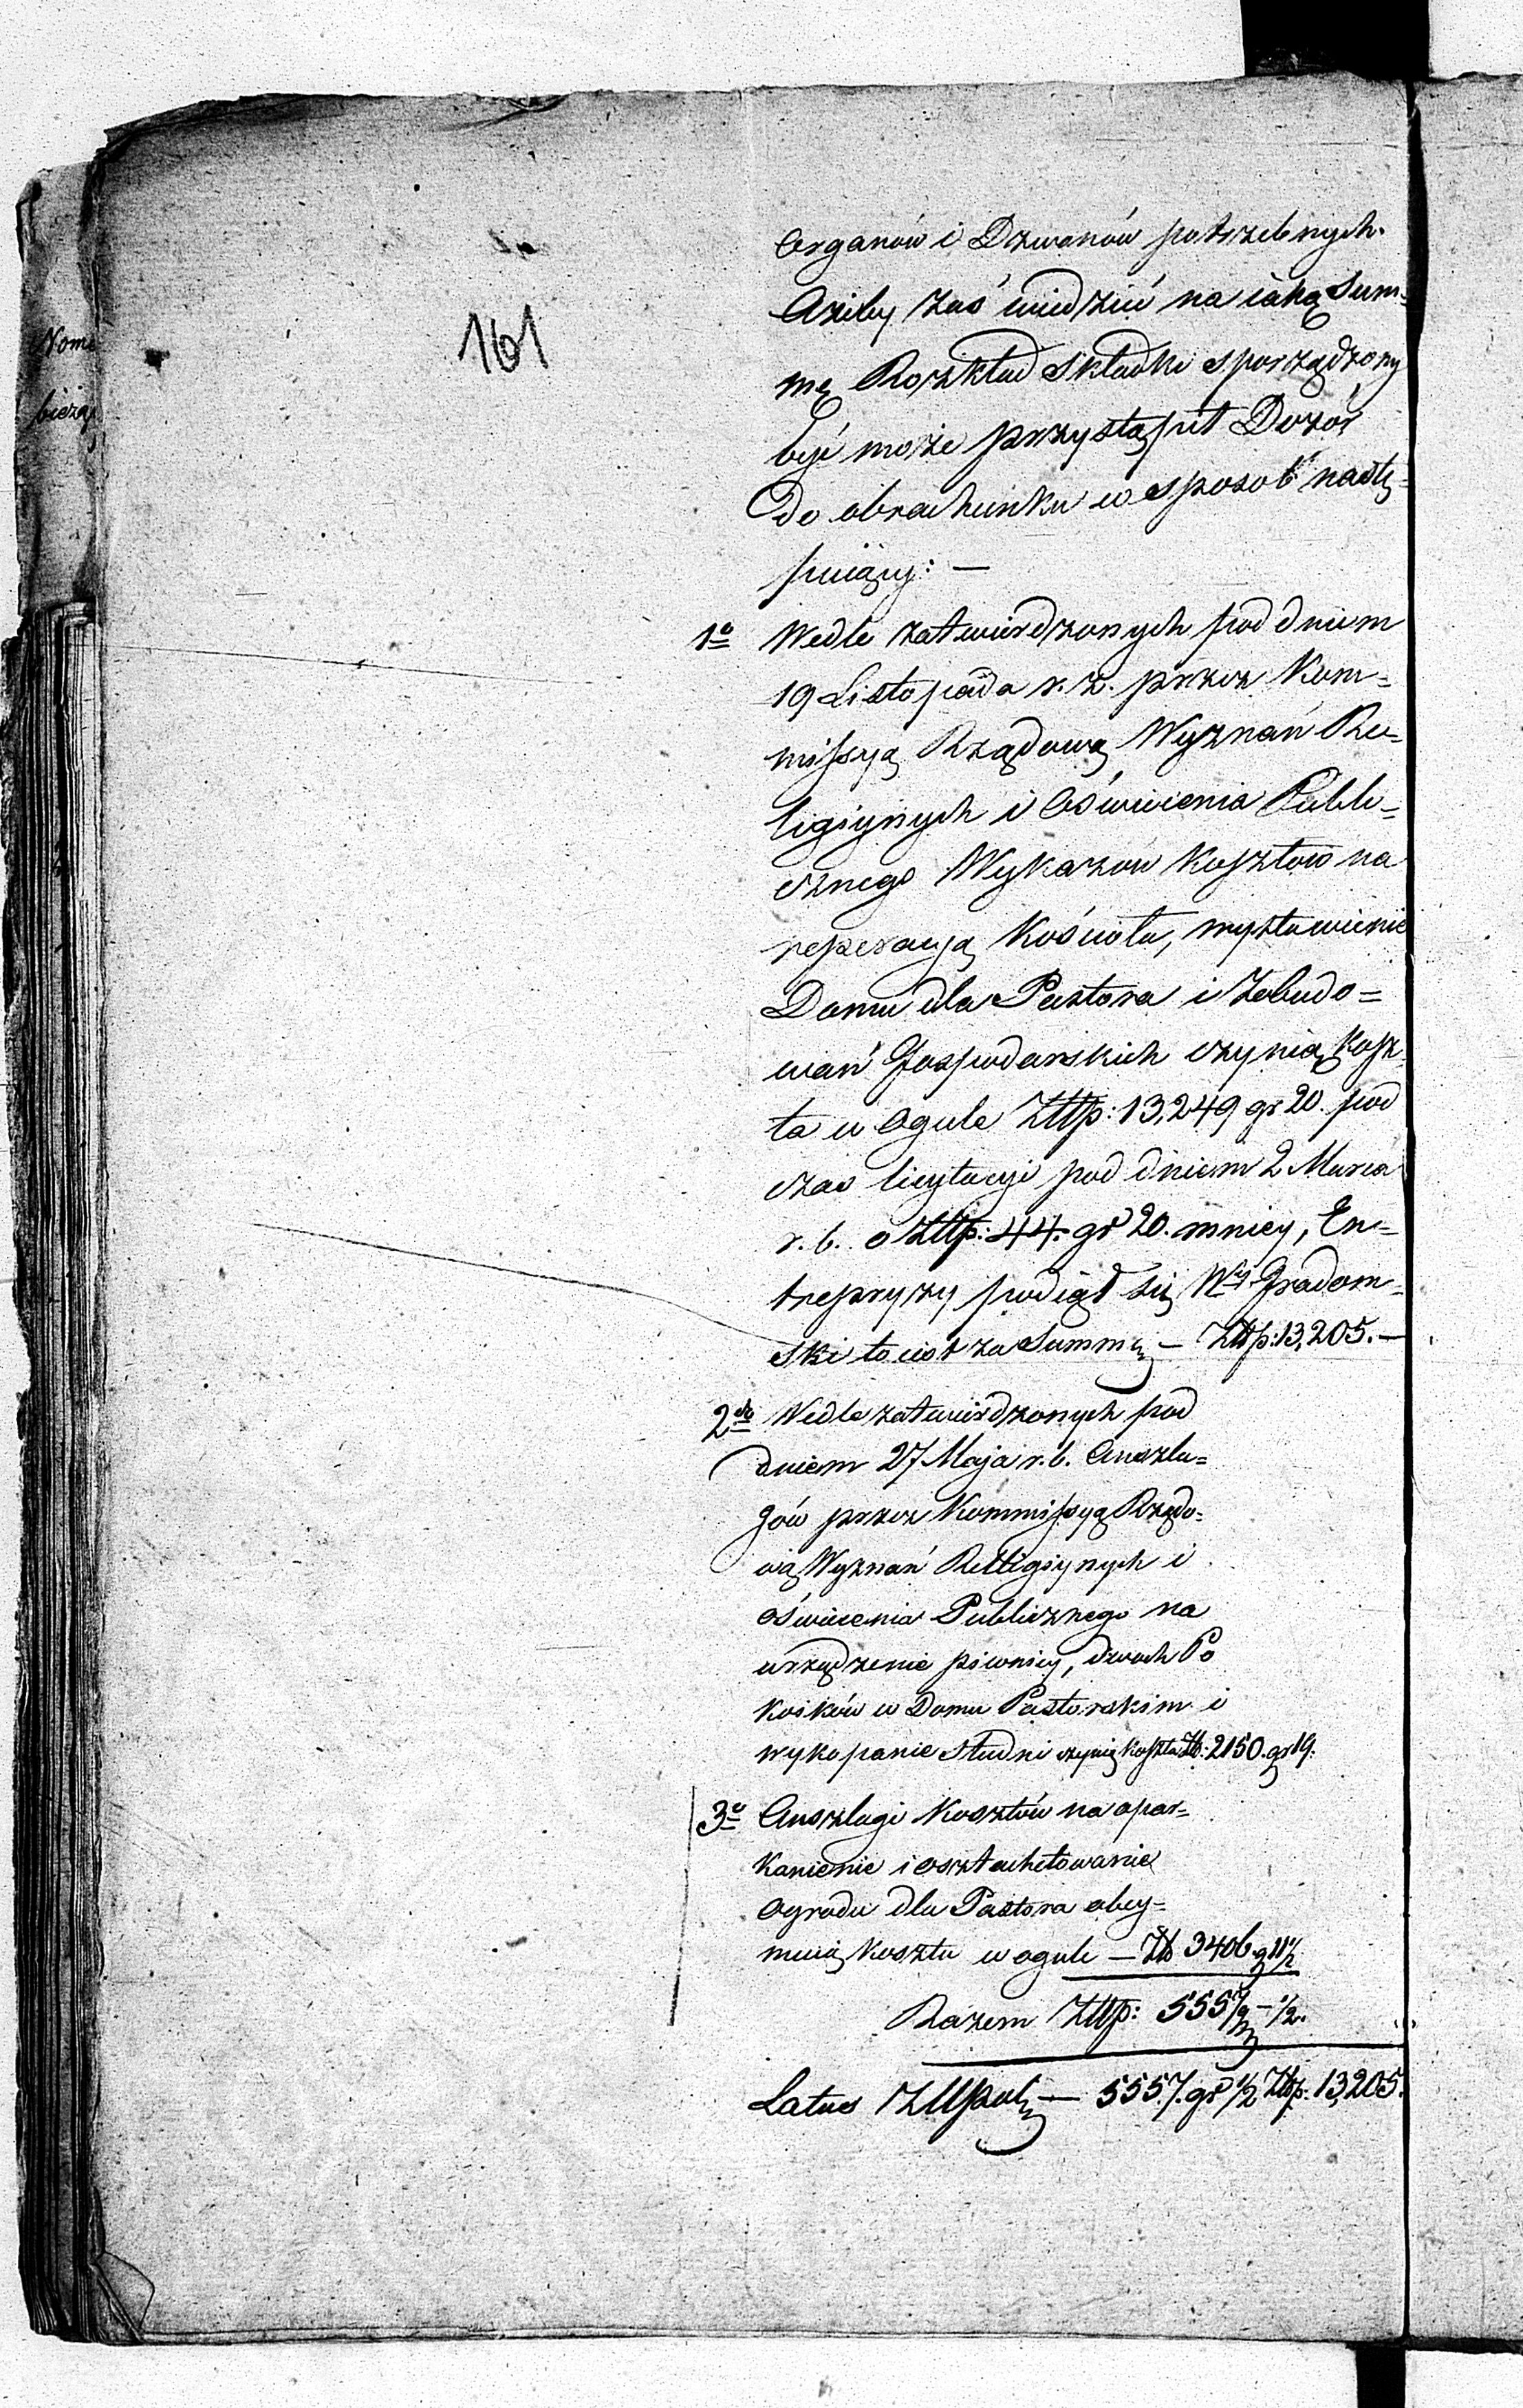 161
Nome
bieżą
Organów i Dzwonów potrzebnych.
Ażeby zaś wiedzieć na iaką Sum=
mę Rozkład Składki sporządzony
być może przystąpił Dozór
do obrachunku w sposób nastę=
puiący: —
1o Wedle zatwierdzonych pod dniem
19 Listopada r. z. przez Kom=
missyą Rządową Wyznań Re=
ligiynych i Oświecenia Publi=
cznego Wykazów Kosztów na
reperacyą Kościoła, wystawienie
Domu dla Pastora i Zabudo=
wań Gospodarskich czynią Kosz=
ta w ogule Złtp: 13,249 gr 20. pod
czas licytacyi pod dniem 2 Marca
r. b. o Złtp: 44. gr 20. mniey, En=
trepryzy podiął się Wny Gradom=
ski to iest za Summę — Złtp: 13,205. —
2do Wedle zatwierdzonych pod
dniem 27 Maja r. b. Anszla=
gów przez Kommissyą Rządo=
wą Wyznań Relligiynych i
Oświecenia Publicznego na
urządzenie piwnicy, dwóch Po
koików w Domu Pastorskim i
wykopanie Studni czynią Koszta Zł: 2150. gr 19.
3o Anszlagi Kosztów na opar=
kanienie i osztachetowanie
Ogrodu dla Pastora obey=
muią Koszta w ogule — Zł 3406. g 11 1/2
Razem Złtp: 5557 g — 1/2.
Latus Złtpol — 5557. gr 1/2 Złtp. 13,205.